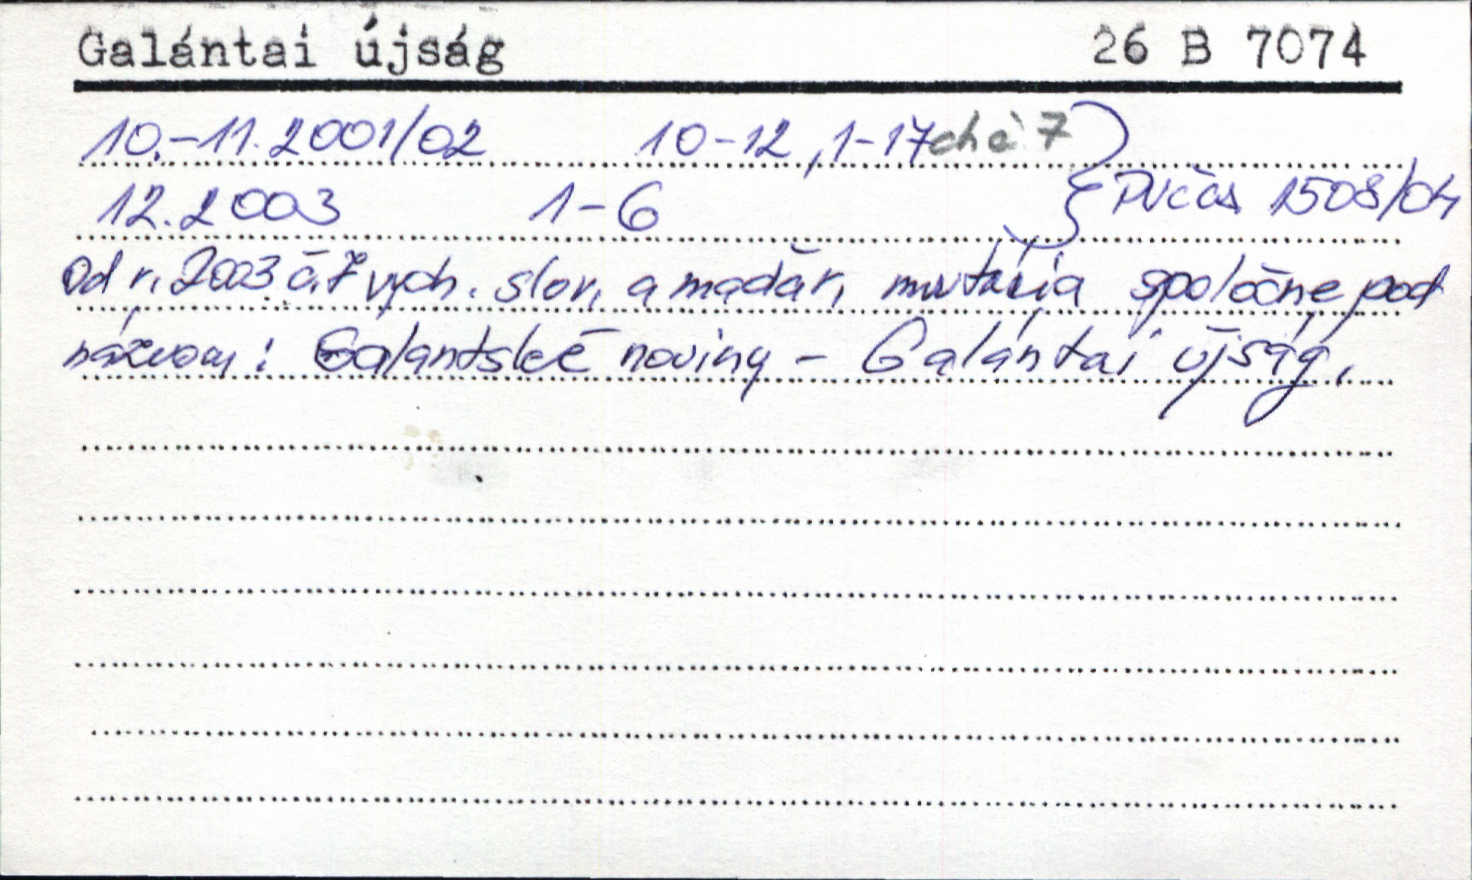 Galántai újság 26 B 7074
10.-11.2001/02 10-12, 1-17 ch č 7
12.2003 1-6 } PVčas 1508/04
Od r. 2003 č. 7 vych. slov. a maďar. mutácia spoločne pod
názvom: Galantské noviny - Galántai újság.